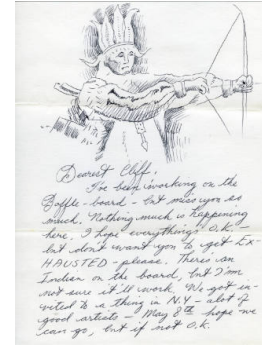 Dearest Cliff,
I've been working on the
Baffle-board - but miss you so
much. Nothing much is happening
here. I hope everythings O.K. -
but dont want you to get EX-
HAUSTED - please. There's an
Indian on the board, but I'm
not sure it'll work. We got in-
vited to a thing in N.Y. - a lot of
good artists - May 8th hope we
can go, but if not O.K.